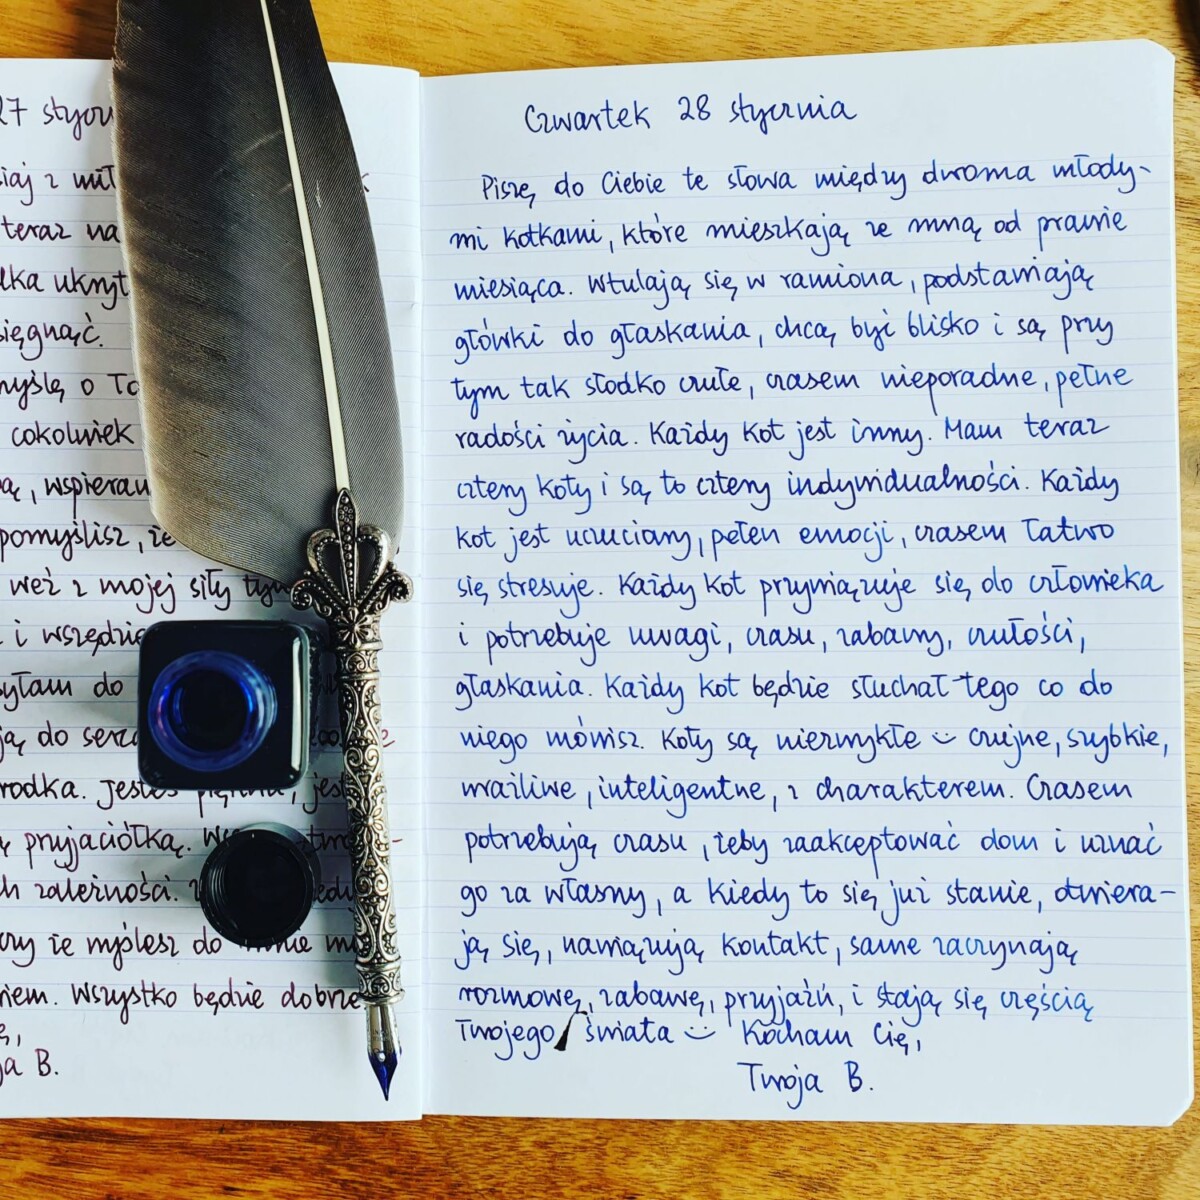 27
siaj z
teraz na
ukryt
sięgnąć.
myślę o
cokolwiek
wspieram
pomyślisz, że
weź z mojej siły
i wszędzie
do
ją do
Jesteś piękna,
przyjaciółką.
zależności.
czy że myślesz do mnie
Wszystko będzie dobrze
B.
Czwartek 28 stycznia
Piszę do Ciebie te słowa między dwoma młody-
mi kotkami, które mieszkają ze mną od prawie
miesiąca. Wtulają się w ramiona, podstawiają
główki do głaskania, chcą być blisko i są przy
tym tak słodko czułe, czasem nieporadne, pełne
radości życia. Każdy kot jest inny. Mam teraz
cztery koty i są to cztery indywidualności. Każdy
kot jest uczuciowy, pełen emocji, czasem łatwo
się stresuje. Każdy kot przywiązuje się do człowieka
i potrzebuje uwagi, czasu, zabawy, czułości,
głaskania. Każdy kot będzie słuchał tego co do
niego mówisz. Koty są niezwykłe :) czujne, szybkie,
wrażliwe, inteligentne, z charakterem. Czasem
potrzebują czasu, żeby zaakceptować dom i uznać
go za własny, a kiedy to się już stanie, otwiera-
ją się, nawiązują kontakt, same zaczynają
rozmowę, zabawę, przyjaźń, i stają się częścią
Twojego świata :) Kocham Cię,
Twoja B.